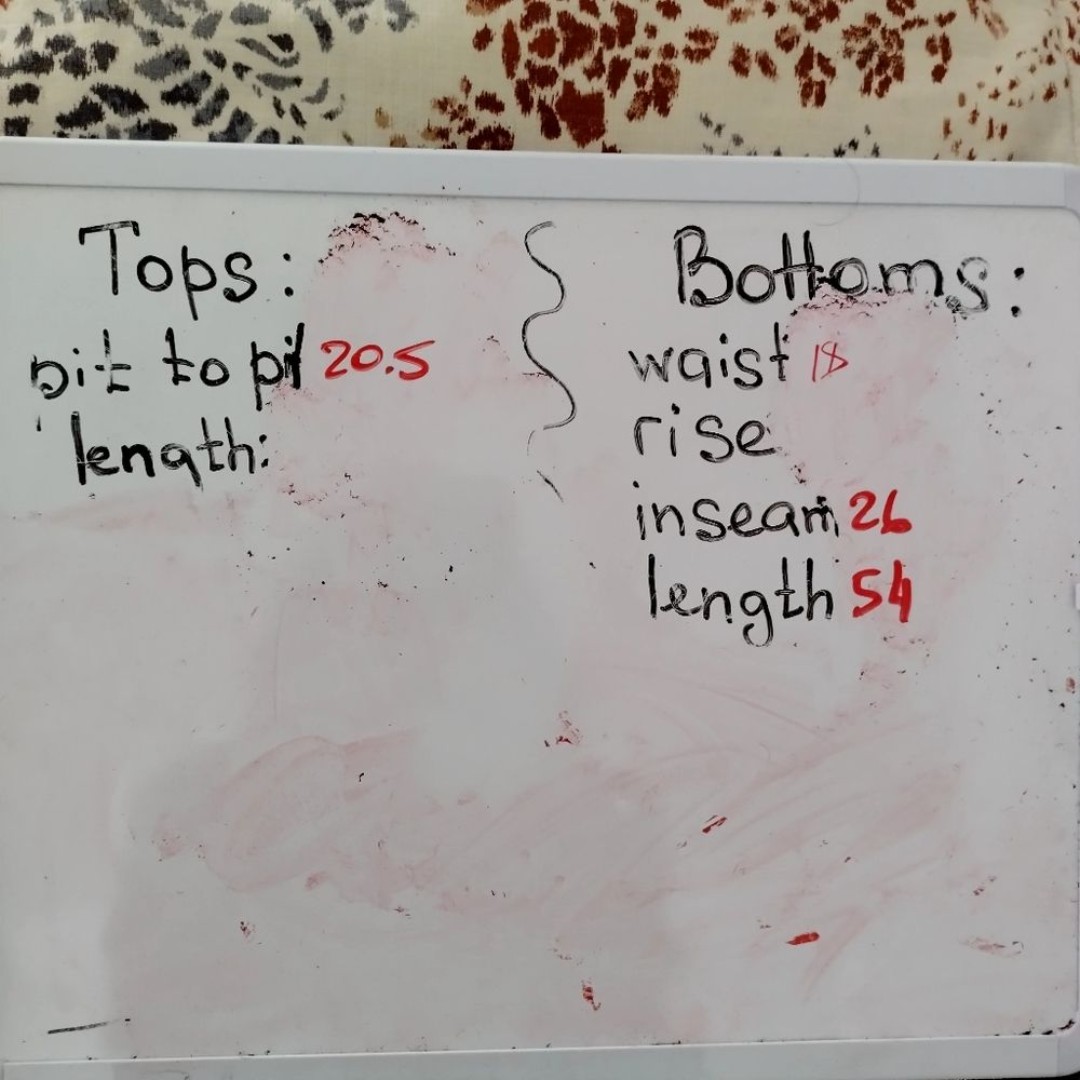 Tops:
pit to pit 20.5
length:
Bottoms:
waist 18
rise
inseam 26
length 54